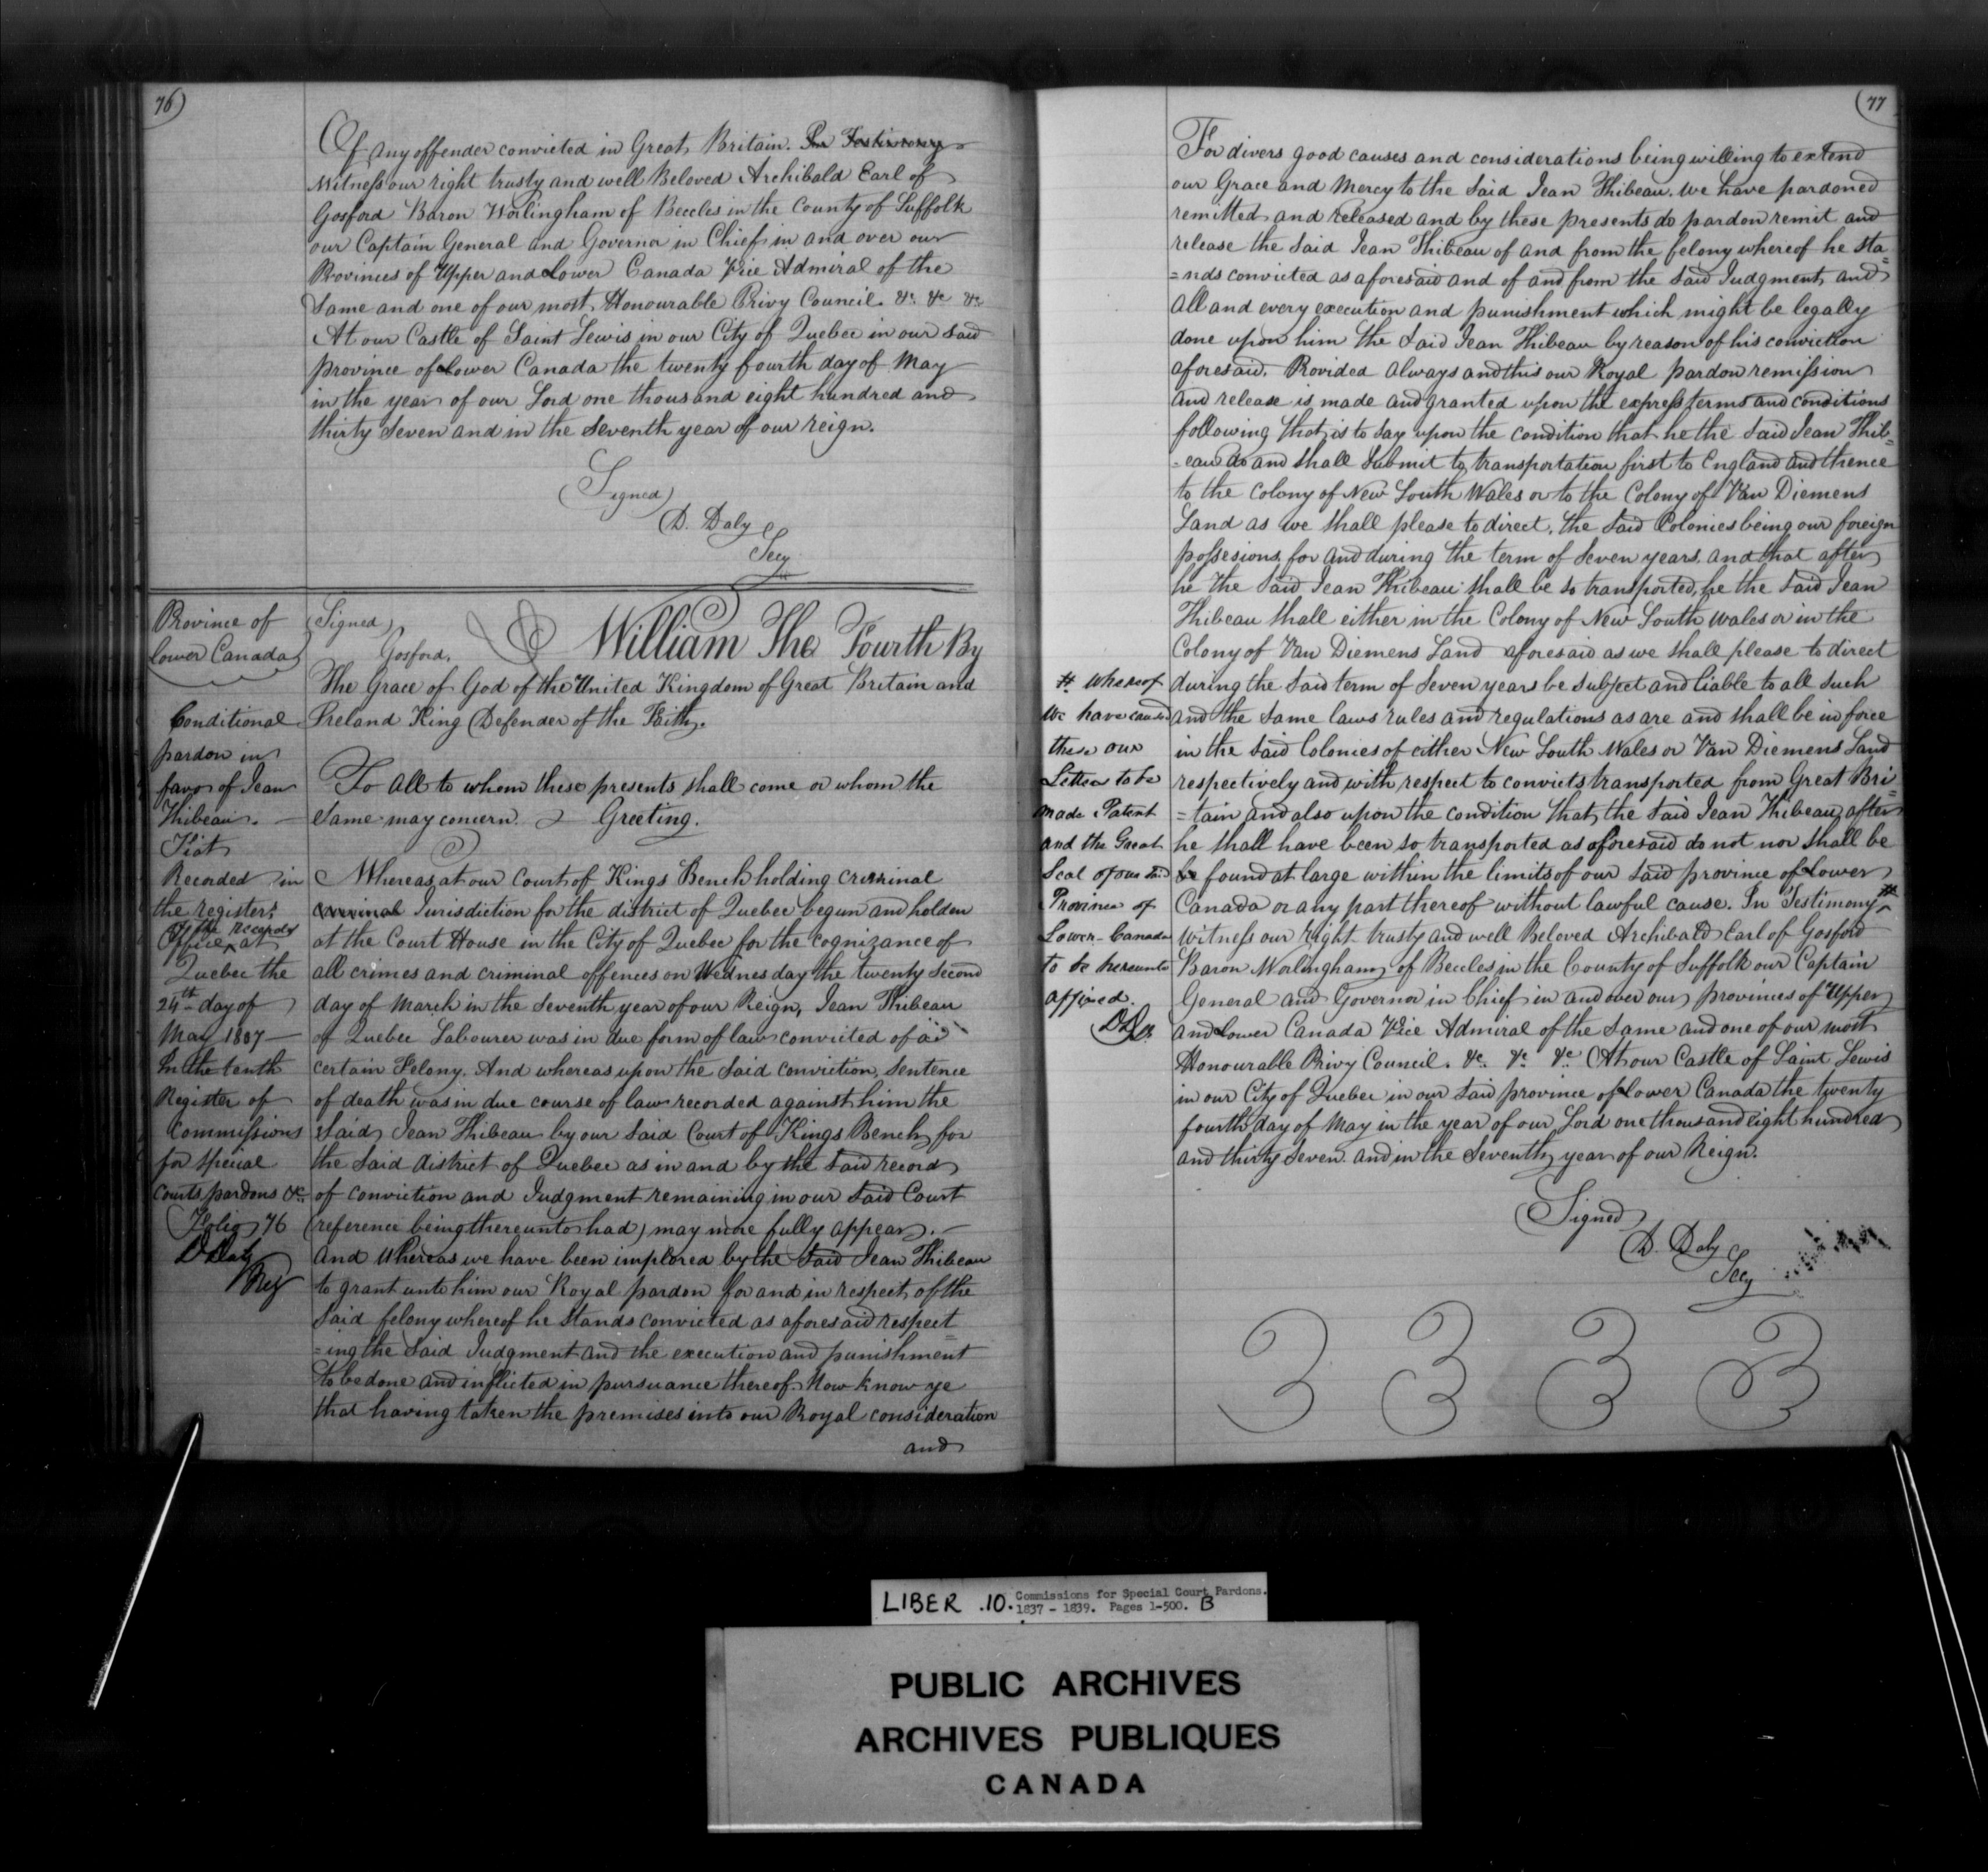 76)
Of any offender convicted in Great Britain. In Testimony
Witness our right trusty and well Beloved Archibald Earl of
Gosford Baron Worlingham of Beccles in the County of Suffolk
our Captain General and Governor in Chief in and over our
Provinces of Upper and Lower Canada Vice Admiral of the
Same and one of our most Honourable Privy Council. &c. &c. &c.
At our Castle of Saint Lewis in our City of Quebec in our said
province of Lower Canada the twenty fourth day of May
in the year of our Lord one thousand eight hundred and
thirty Seven and in the Seventh year of our reign.
(Signed)
D. Daly
Secy
Province of
Lower Canada
Conditional
pardon in
favor of Jean
Thibeau. —
Fiat
Recorded in
the registers
Office of the records at
Quebec the
24th day of
May 1837 —
In the tenth
Register of
Commissions
for Special
Courts pardons &c.
Folio 76
D Daly
Reg
(Signed)
Gosford.
William The Fourth By
The Grace of God of the United Kingdom of Great Britain and
Ireland King Defender of the Faith.
To all to whom these presents shall come or whom the
Same may concern. Greeting.
Whereas at our Court of Kings Bench holding criminal
criminal Jurisdiction for the district of Quebec begun and holden
at the Court House in the City of Quebec for the cognizance of
all crimes and criminal offences on Wednesday the twenty Second
day of March in the Seventh year of our Reign, Jean Thibeau
of Quebec Labourer was in due form of law convicted of a
certain Felony. And whereas upon the Said conviction, Sentence
of death was in due course of law recorded against him the
Said Jean Thibeau by our Said Court of Kings Bench for
the Said district of Quebec as in and by the Said record
of conviction and Judgment remaining in our Said Court
(reference being thereunto had) may more fully appear. —
And Whereas we have been implored by the Said Jean Thibeau
to grant unto him our Royal pardon for and in respect of the
Said felony whereof he Stands convicted as aforesaid respect
=ing the Said Judgment and the execution and punishment
to be done and inflicted in pursuance thereof. Now know ye
that having taken the premises into our Royal consideration
and
(77
For divers good causes and considerations being willing to extend
our Grace and Mercy to the Said Jean Thibeau. We have pardoned
remitted and released and by these presents do pardon remit and
release the Said Jean Thibeau of and from the felony whereof he sta
=nds convicted as aforesaid and of and from the Said Judgment, and
All and every execution and punishment which might be legally
done upon him the Said Jean Thibeau by reason of his conviction
aforesaid. Provided always and this our Royal pardon remission
and release is made and granted upon the express terms and conditions
following that is to Say upon the condition that he the Said Jean Thib=
=eau do and shall Submit to transportation first to England and thence
to the Colony of New South Wales or to the Colony of Van Diemens
Land as we shall please to direct, the Said Colonies being our foreign
possesions, for and during the term of Seven years, and that after
he the Said Jean Thibeau shall be so transported, he the Said Jean
Thibeau shall either in the Colony of New South Wales or in the
Colony of Van Diemens Land aforesaid as we shall please to direct
during the Said term of Seven years be Subject and liable to all Such
and the Same laws rules and regulations as are and shall be in force
in the Said Colonies of either New South Wales or Van Diemens Land
respectively and with respect to convicts transported from Great Bri=
=tain and also upon the condition that the Said Jean Thibeau after
he shall have been so transported as aforesaid do not nor shall be
be found at large within the limits of our Said province of Lower
Canada or any part thereof without lawful cause. In Testimony #
Witness our right trusty and well Beloved Archibald Earl of Gosford
Baron Worlingham of Beccles in the County of Suffolk our Captain
General and Governor in Chief in and over our provinces of Upper
and Lower Canada Vice Admiral of the Same and one of our most
Honourable Privy Council. &c. &c. &c. At our Castle of Saint Lewis
in our City of Quebec in our Said province of Lower Canada the twenty
fourth day of May in the year of our Lord one thousand eight hundred
and thirty Seven. and in the Seventh year of our Reign.
(Signed)
D. Daly
Secy
# Whereof
We have caused
these our
Letters to be
made Patent
and the Great
Seal of our Said
Province of
Lower-Canada
to be hereunto
affixed.
LIBER .10. Commissions for Special Court Pardons.
1837 - 1839. Pages 1-500. B
PUBLIC ARCHIVES
ARCHIVES PUBLIQUES
CANADA